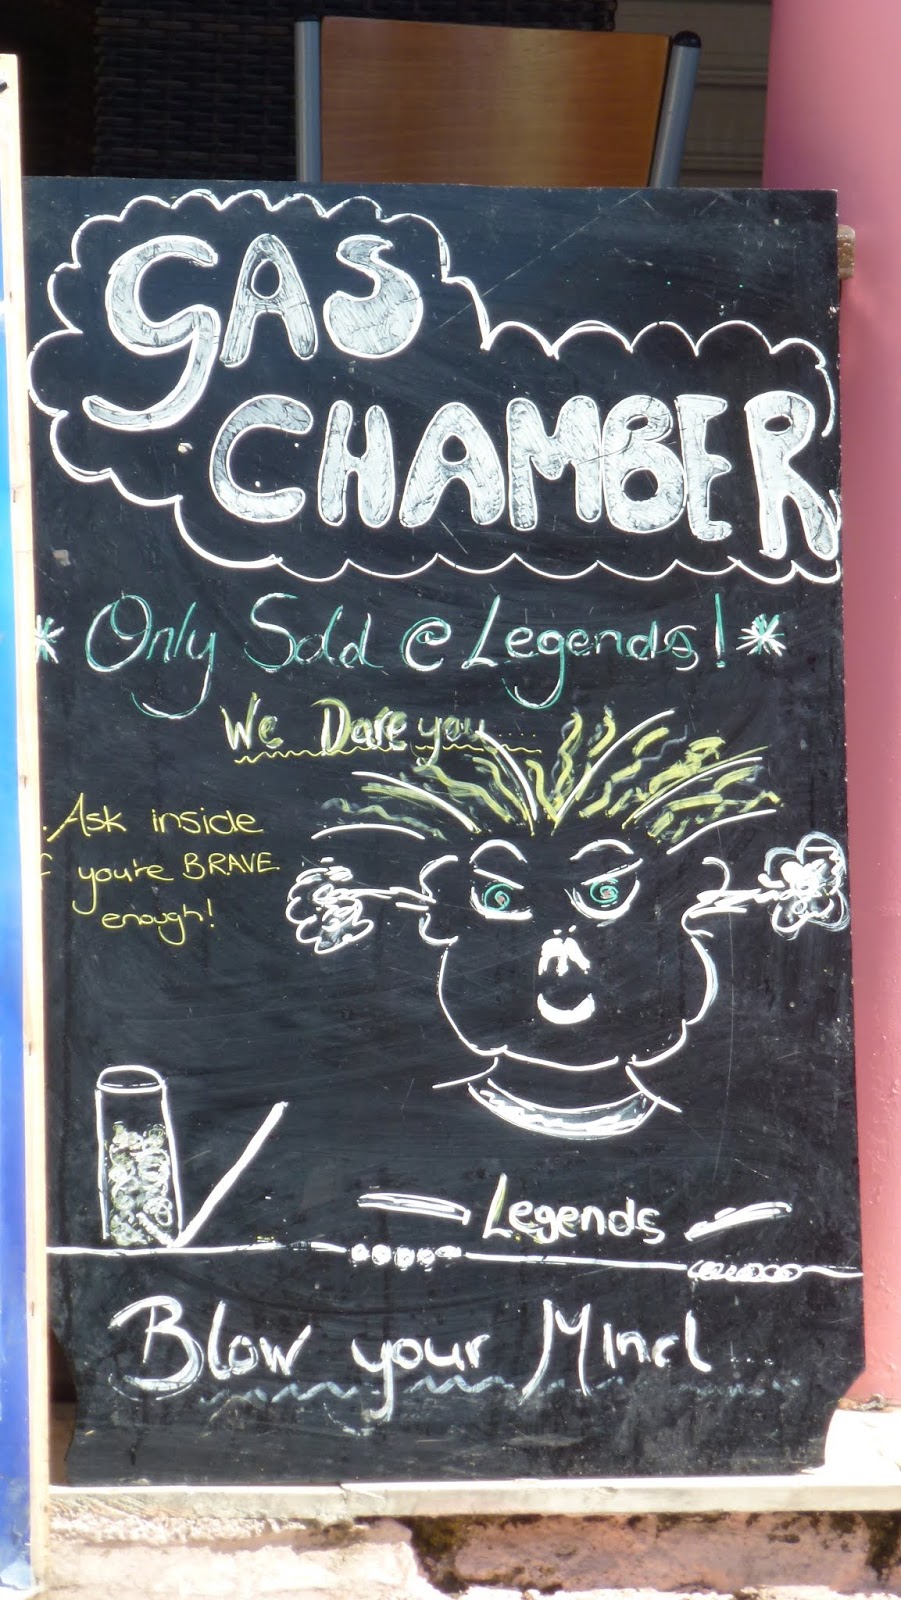 GAS
CHAMBER
* Only Sold @ Legends! *
We Dare you ....
Ask inside
f you're BRAVE
enough!
Legends
Blow your Mind ...